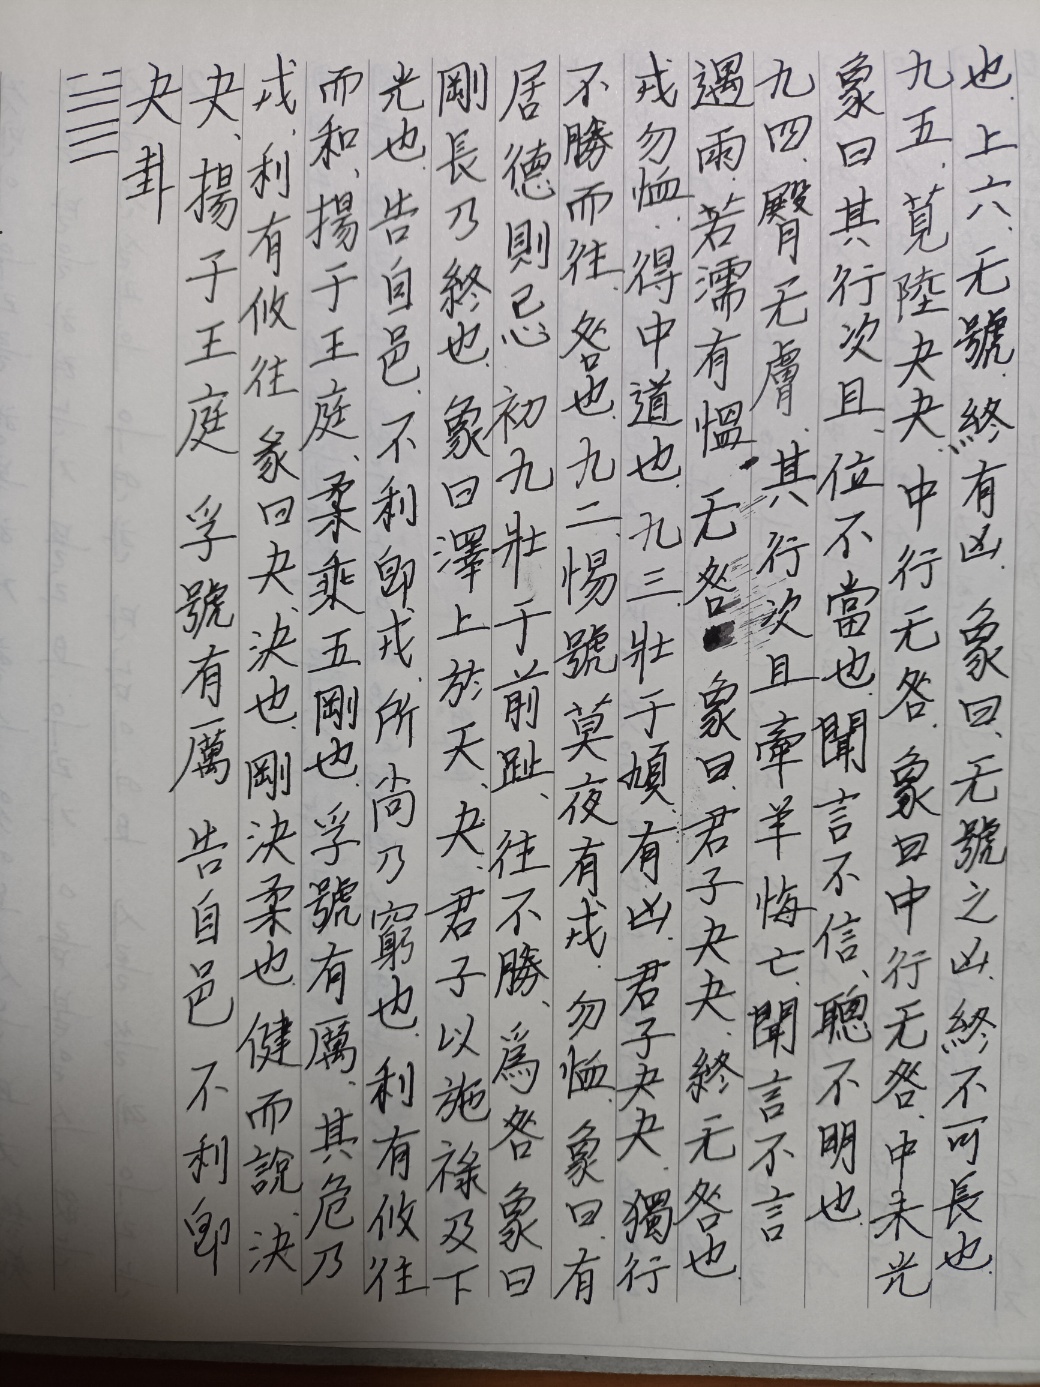 夬卦
夬、揚于王庭 孚號有厲 告自邑 不利卽
戎、利有攸往 彖曰夬、決也、剛決柔也、健而說、決
而和、揚于王庭、柔乘五剛也、孚號有厲、其危乃
光也、告自邑、不利卽戎、所尚乃窮也、利有攸往
剛長乃終也、象曰澤上於天、夬、君子以施祿及下
居德則忌 初九壯于前趾、往不勝、爲咎 象曰
不勝而往、咎也、九二、惕號莫夜有戎、勿恤、象曰、有
戎勿恤、得中道也、九三壯于頄、有凶 君子夬夬 獨行
遇雨、若濡有慍、无咎、象曰、君子夬夬、終无咎也、
九四、臀无膚、其行次且牽羊悔亡、聞言不言
象曰其行次且、位不當也、聞言不信、聰不明也、
九五、莧陸夬夬、中行无咎、象曰中行无咎、中未光
也、上六、无號、終有凶、象曰、无號之凶、終不可長也、